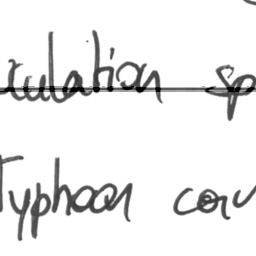 culation sp
Typhoon cou